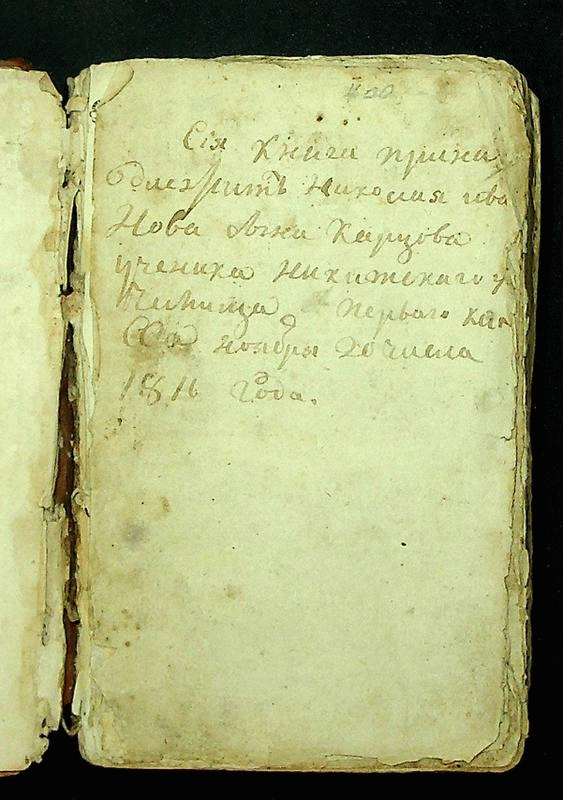 Сія книга прина
длежитъ Николая ива
Нова сына Карцова
ученика Никитскаго у
чилища первого кла
сса ноября 20 числа
1816 года.